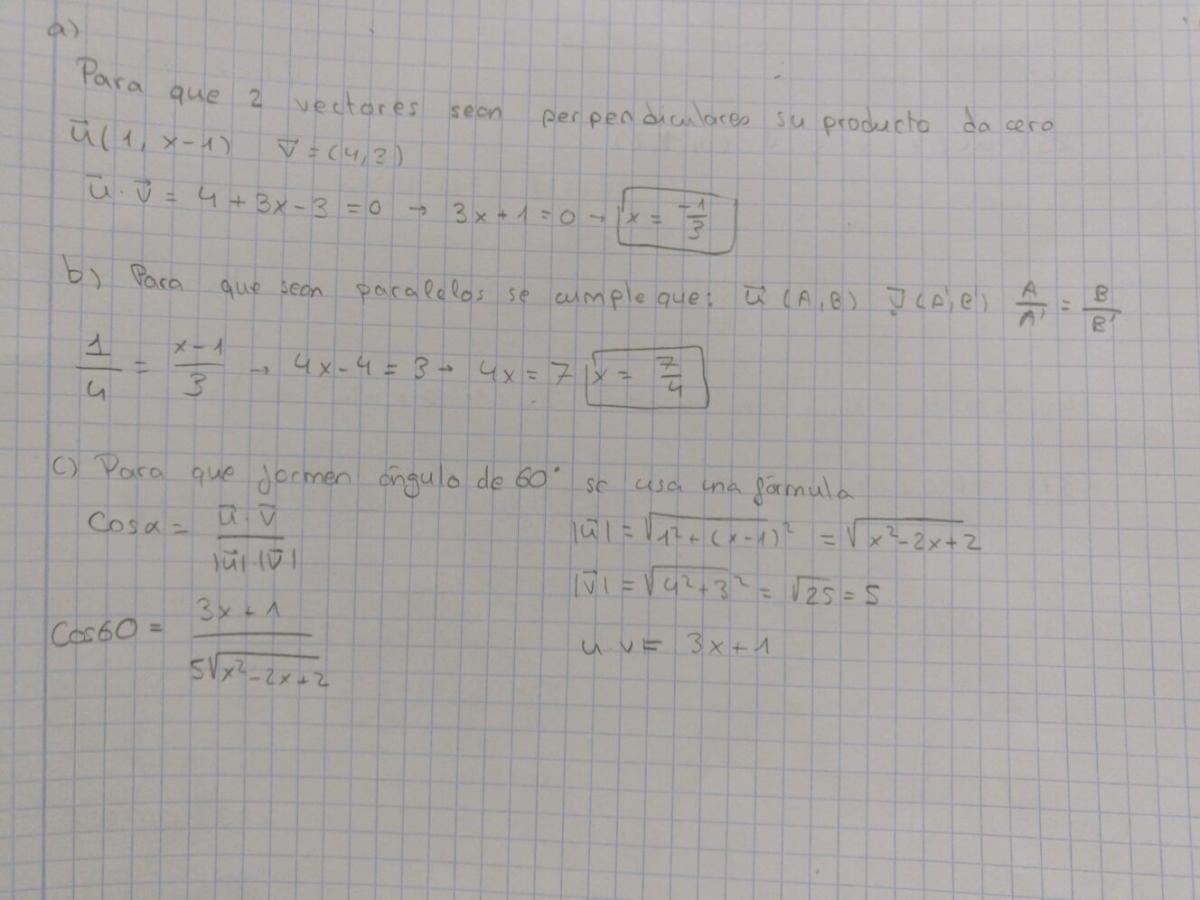 a)
Para que 2 vectores sean perpendiculares su producto da cero
u⃗(1, x-1) v⃗=(4,3)
u⃗·v⃗ = 4+3x-3 =0 → 3x+1=0 → x = -1/3
b) Para que sean paralelos se cumple que: u⃗ (A,B) v⃗ (A',B') A/A' = B/B'
1/4 = x-1/3 → 4x-4=3 → 4x=7 x= 7/4
c) Para que formen ángulo de 60° se usa una fórmula
Cosα = u⃗·v⃗/|u⃗|·|v⃗|
|u⃗| = √1²+(x-1)² = √x²-2x+2
|v⃗| = √4²+3² = √25 = 5
Cos60 = 3x+1/5√x²-2x+2
u·v= 3x+1